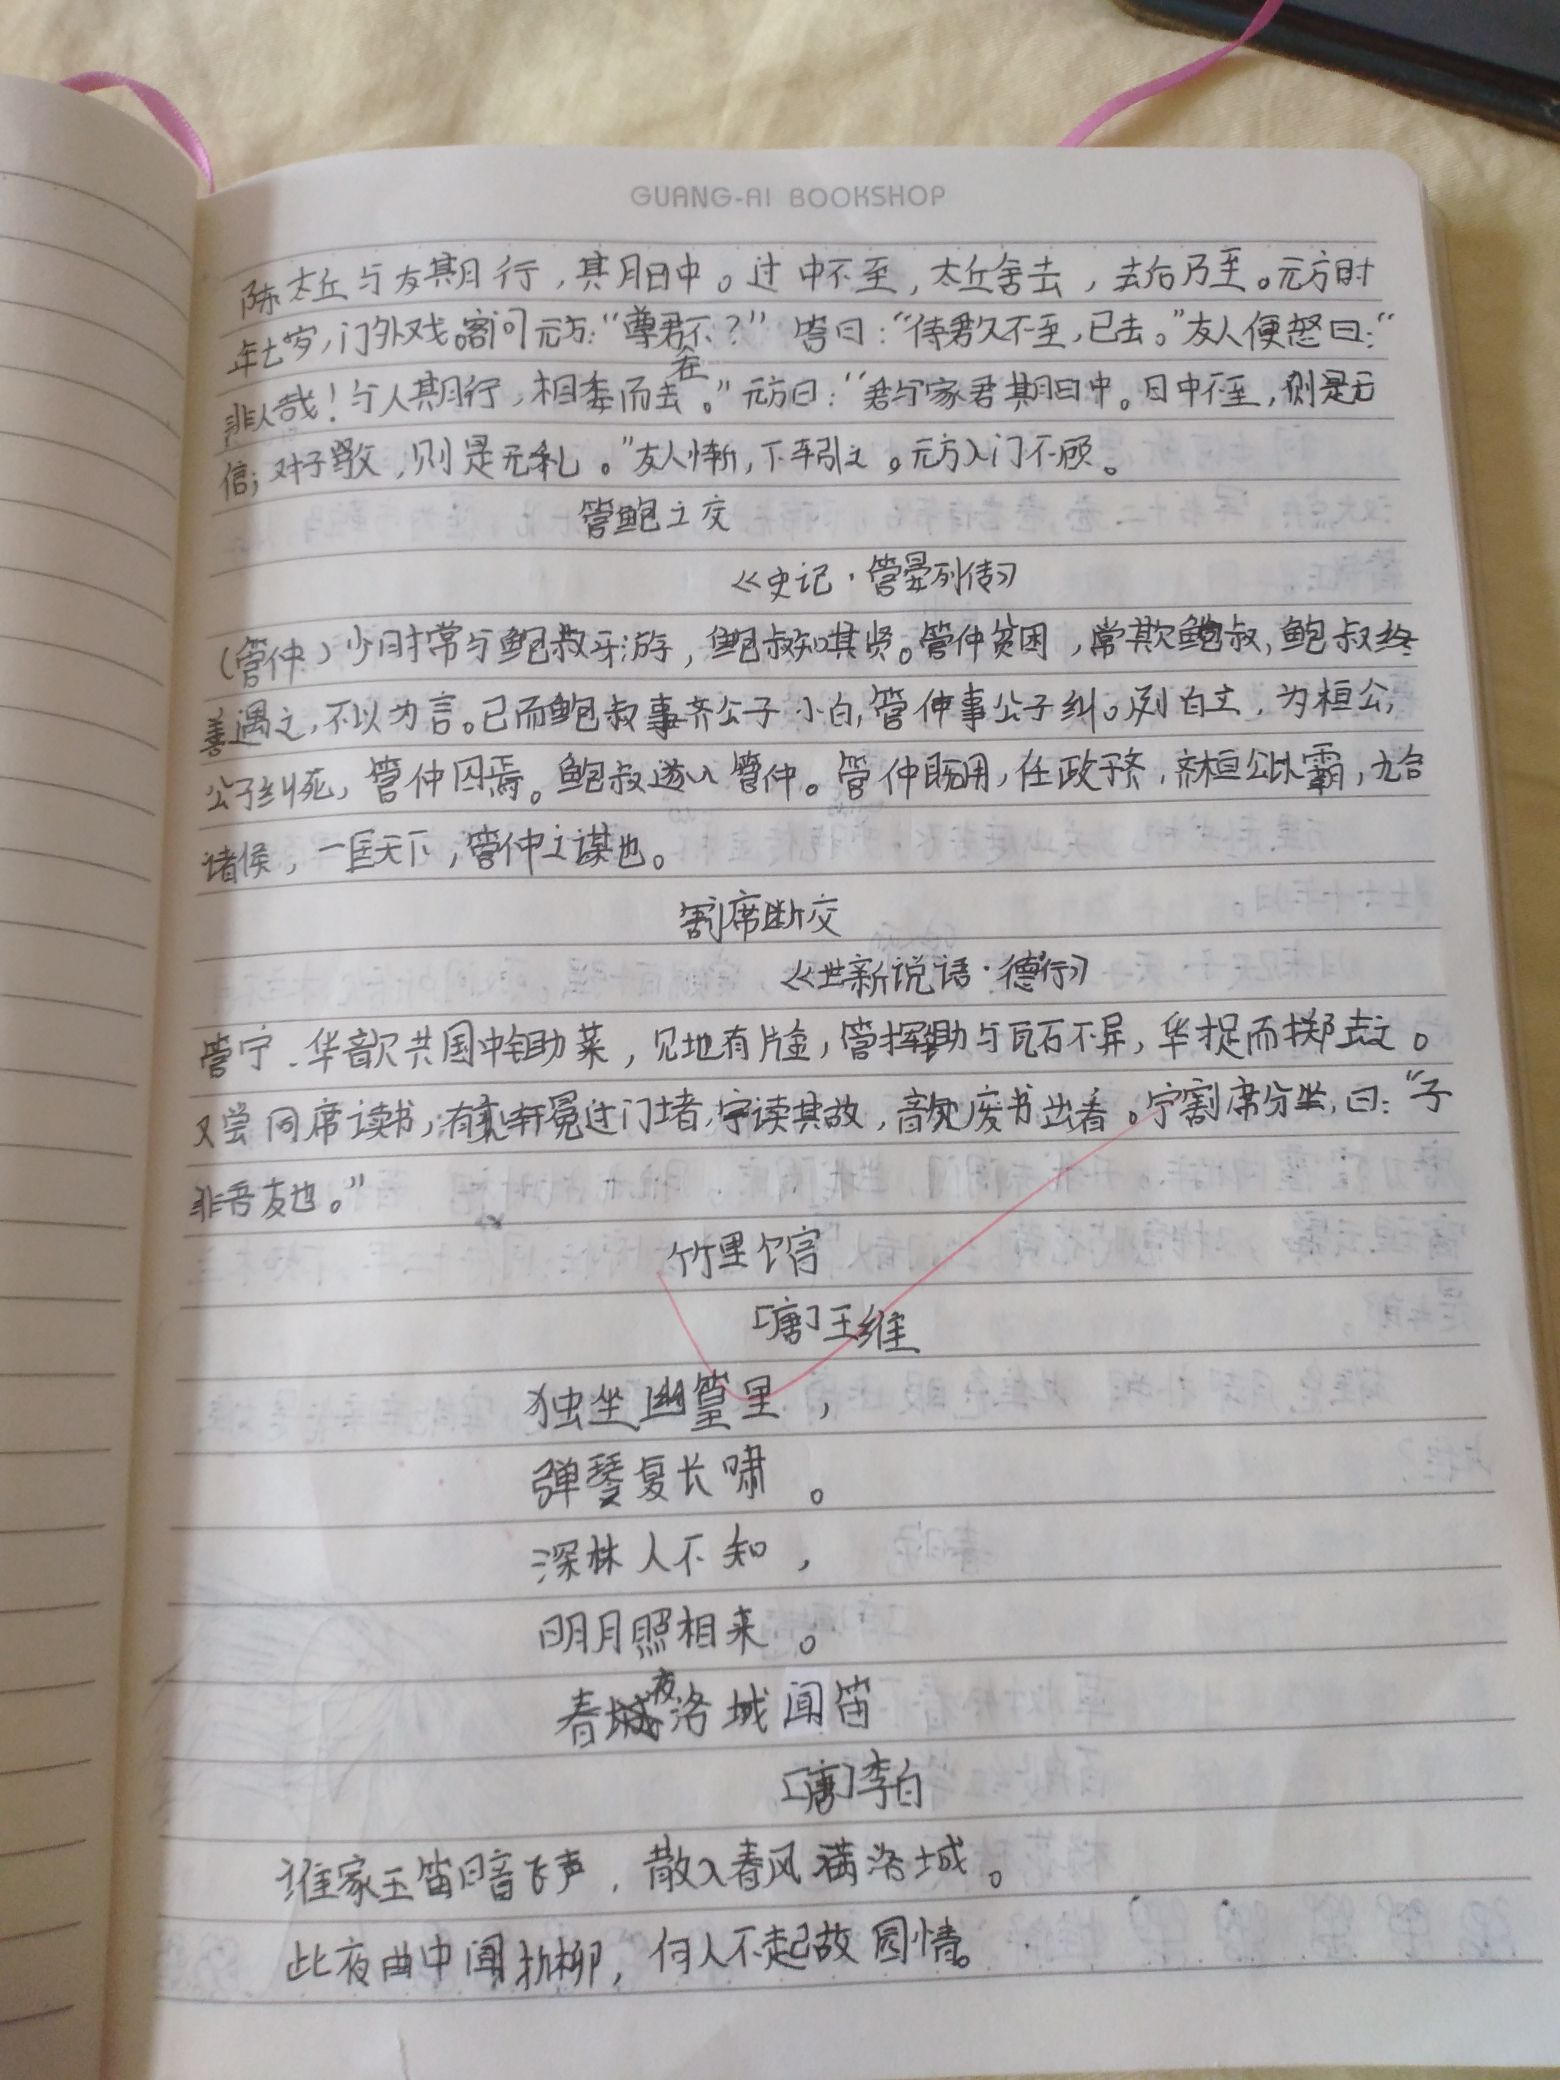 GUANG-AI BOOKSHOP
陈太丘与友期行，其月日中。过中不至，太丘舍去，去后乃至。元方时
年七岁，门外戏。客问元方：“尊君在不？”答曰：“待君久不至，已去。”友人便怒曰：“
非人哉！与人期行，相委而去。”元方曰：“君与家君期日中。日中不至，则是无
信；对子骂父，则是无礼。”友人惭，下车引之。元方入门不顾。
管鲍之交
《史记·管晏列传》
（管仲）少时常与鲍叔牙游，鲍叔知其贤。管仲贫困，常欺鲍叔，鲍叔终
善遇之，不以为言。已而鲍叔事齐公子小白，管仲事公子纠。及白立，为桓公，
公子纠死，管仲囚焉。鲍叔遂入管仲。管仲既用，任政于齐，齐桓公以霸，九合
诸侯，一匡天下，管仲之谋也。
割席断交
《世新说语·德行》
管宁、华歆共园中锄菜，见地有片金，管挥锄与瓦石不异，华捉而掷去之。
又尝同席读书，有乘轩冕过门者，宁读其故，歆废书出看。宁割席分坐，曰：“子
非吾友也。”
竹里馆
［唐］王维
独坐幽篁里，
弹琴复长啸。
深林人不知，
明月照相来。
春夜洛城闻笛
［唐］李白
谁家玉笛暗飞声，散入春风满洛城。
此夜曲中闻折柳，何人不起故园情。